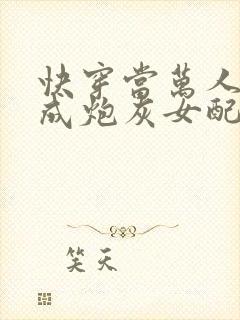 快穿當萬人
成炮灰女配
笑天